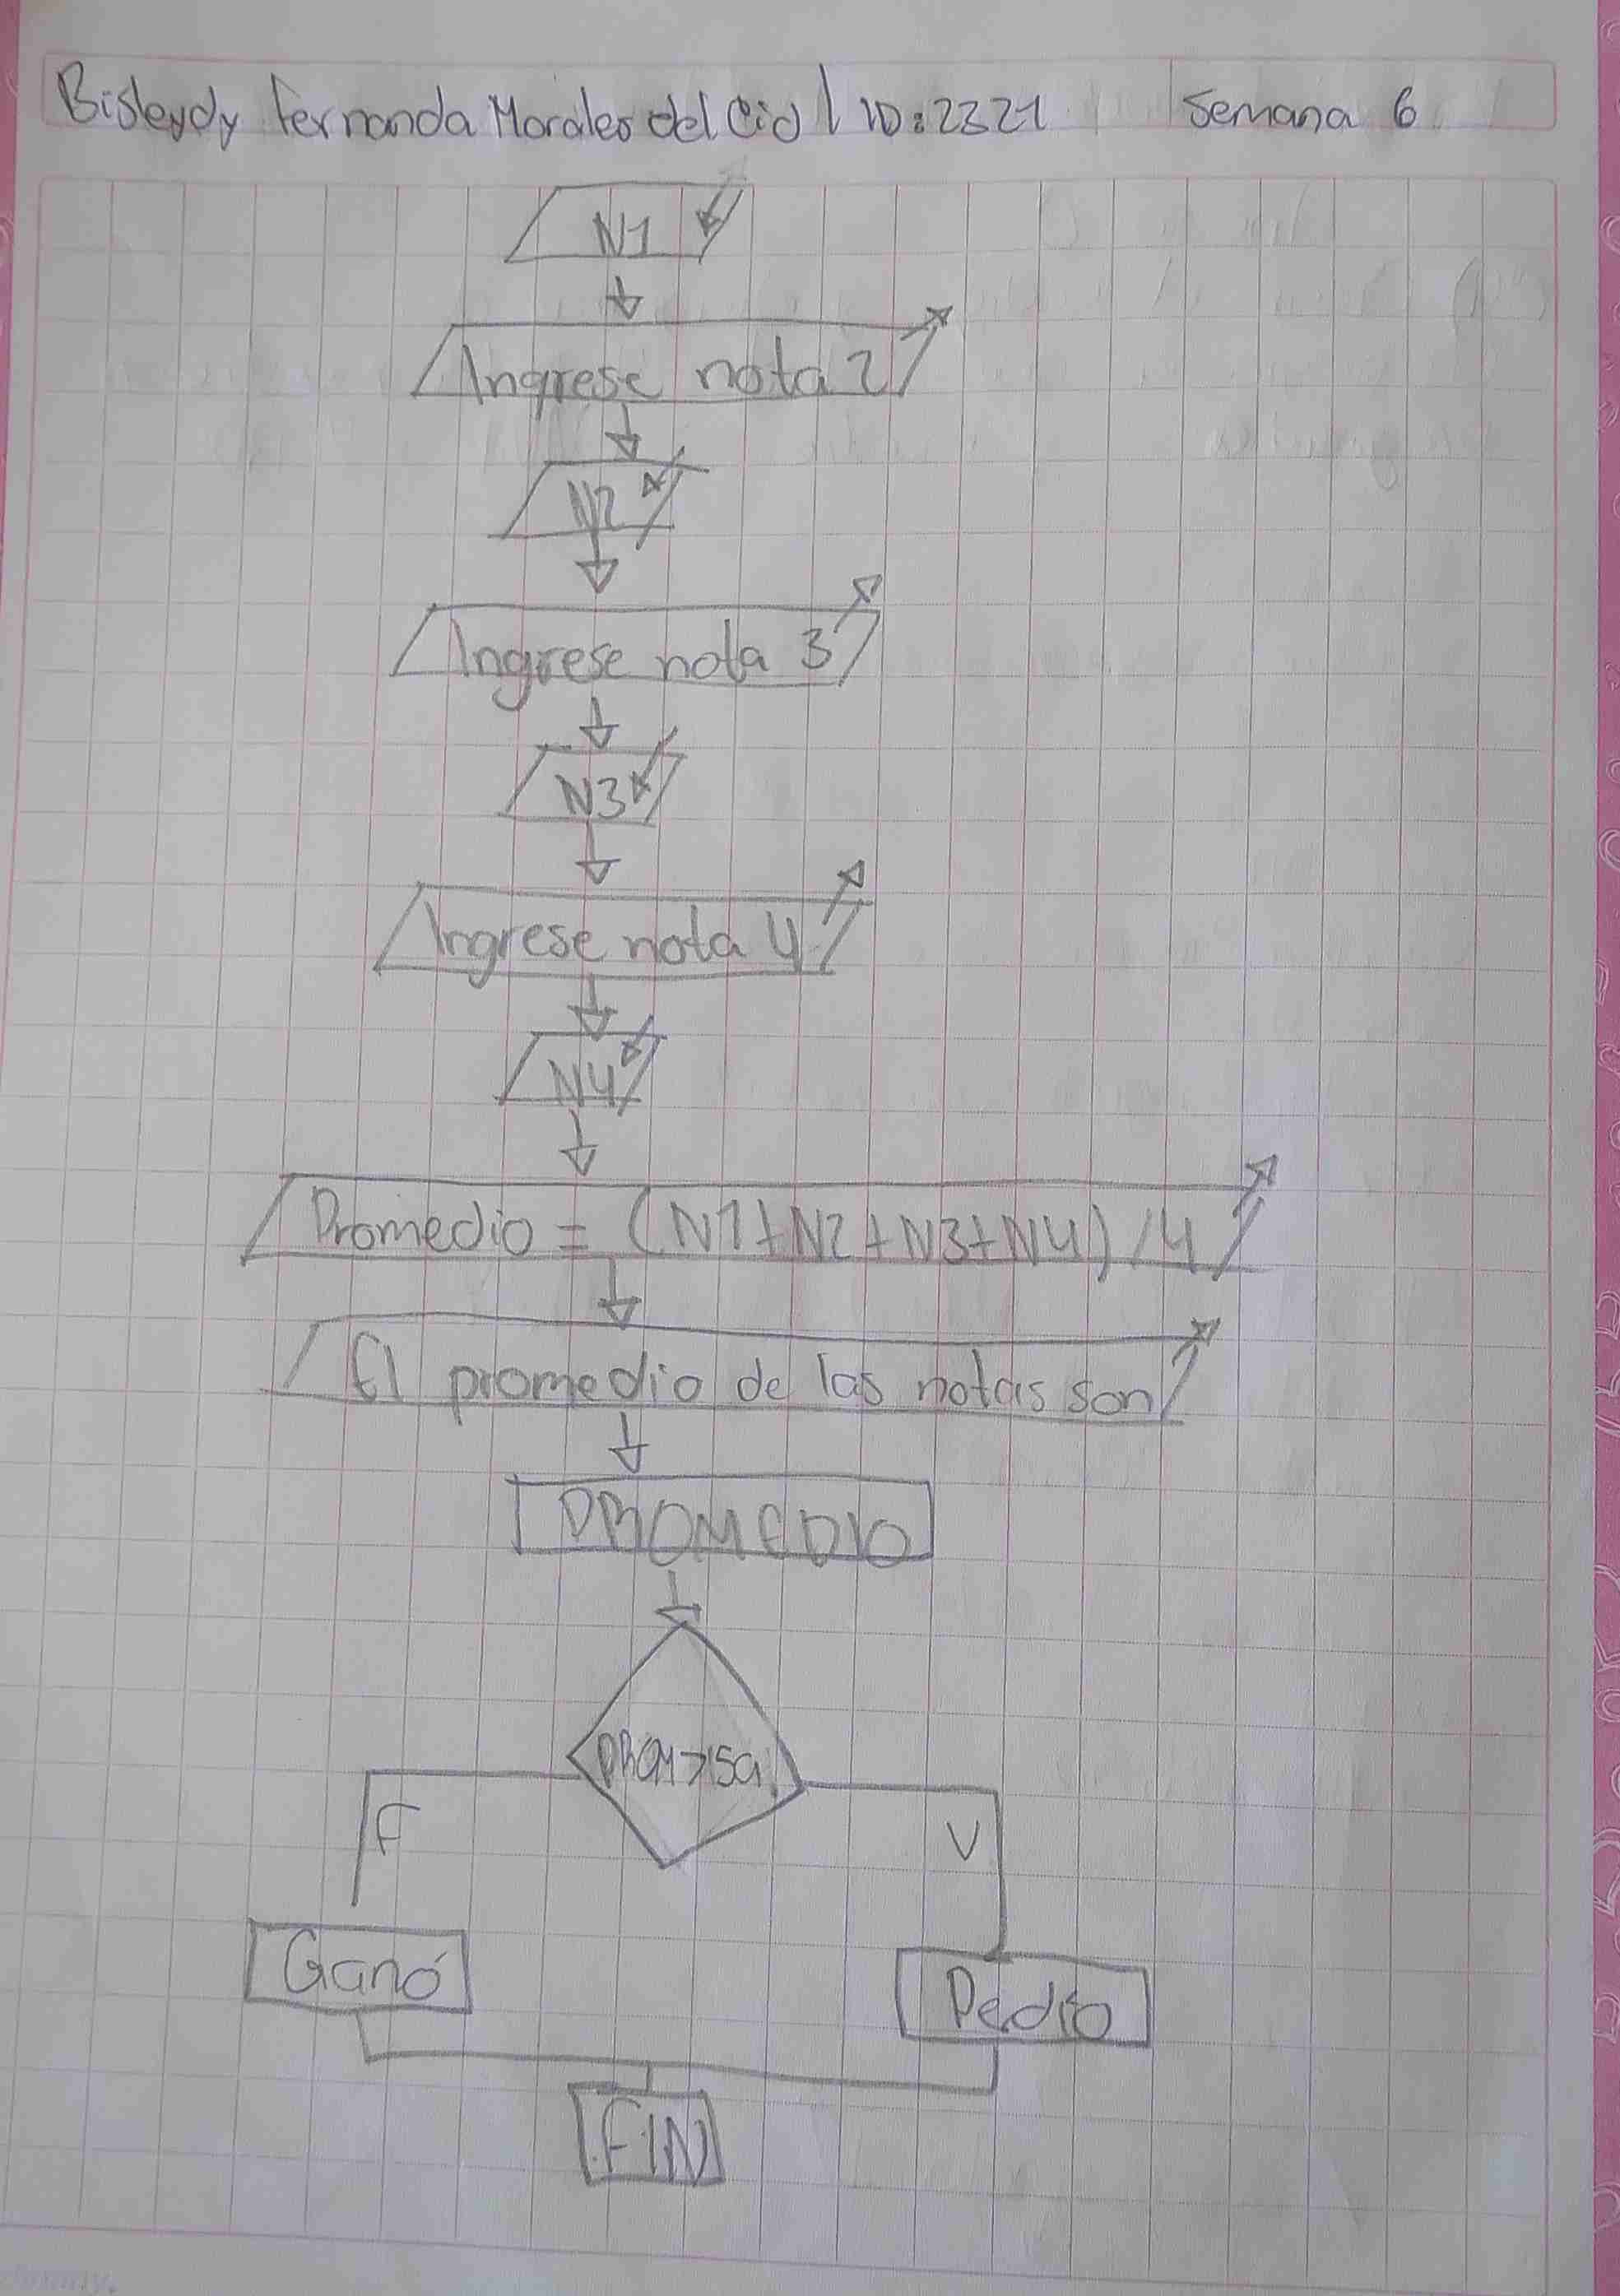 Bisleydy Fernanda Morales del Cid | ID:2321 Semana 6
N1
Ingrese nota 2
N2
Ingrese nota 3
N3
Ingrese nota 4
N4
Promedio = (N1+N2+N3+N4)/4
El promedio de las notas son
PROMEDIO
F V
Ganó
Pedío
FIN